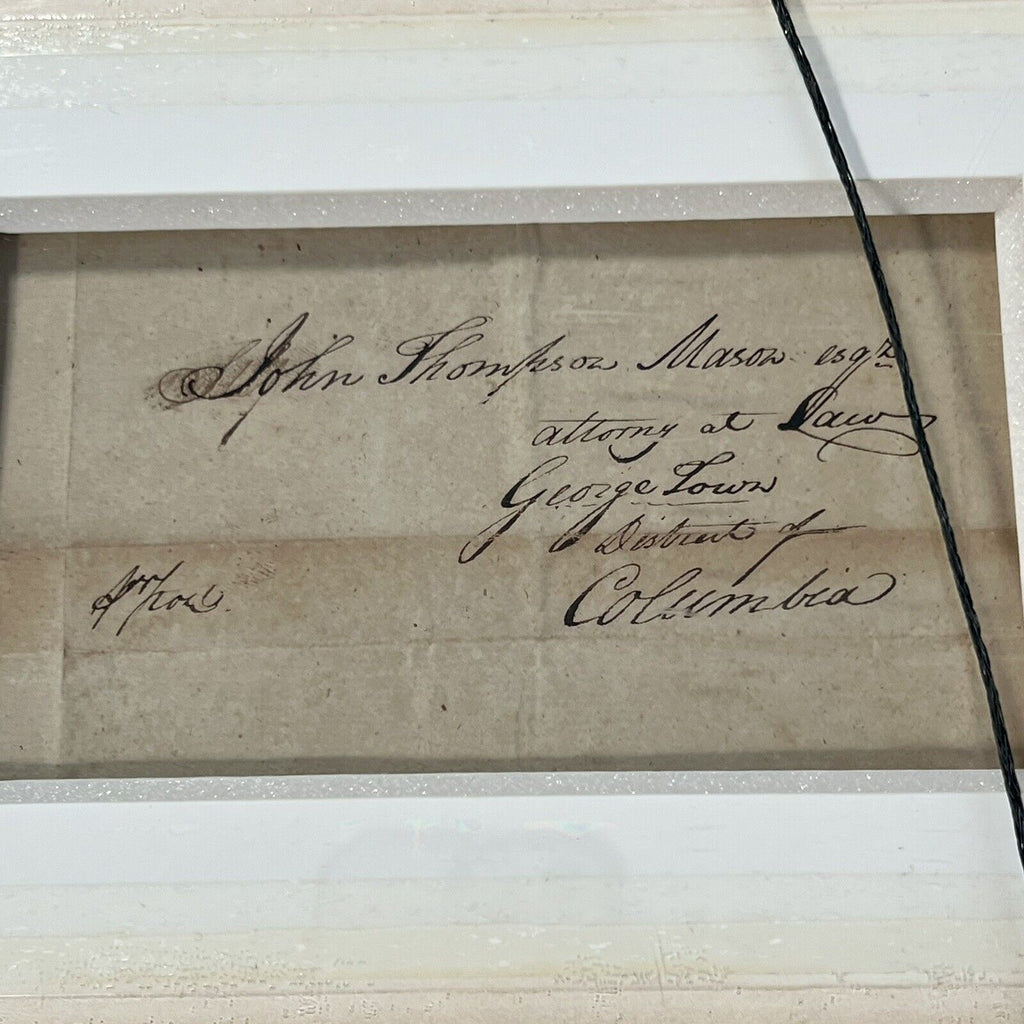 John Thompson Mason esqr
attorny at Law
George Town
District of
Columbia